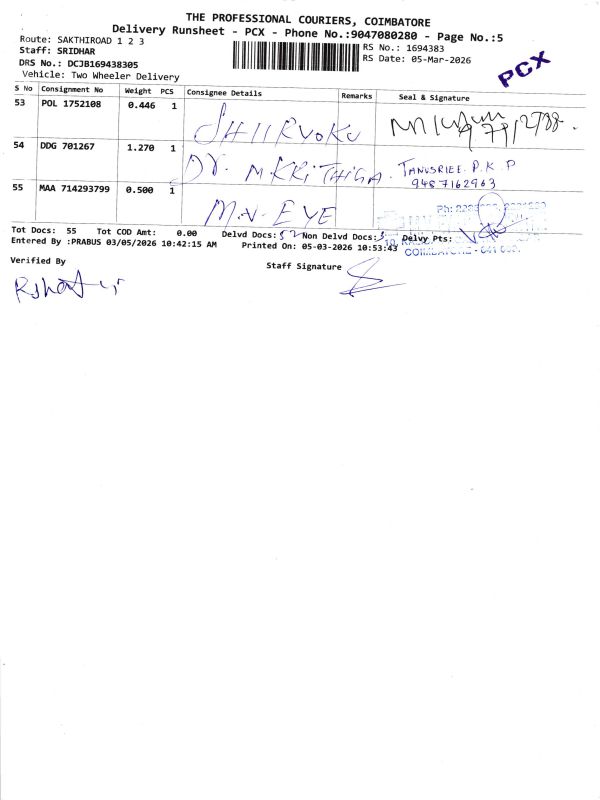 THE PROFESSIONAL COURIERS, COIMBATORE
Delivery Runsheet - PCX - Phone No.:9047080280 - Page No.:5
Route: SAKTHIROAD 1 2 3
Staff: SRIDHAR
RS No.: 1694383
DRS No.: DCJB169438305
RS Date: 05-Mar-2026
PCX
Vehicle: Two Wheeler Delivery
S No Consignment No Weight PCS Consignee Details Remarks Seal & Signature
53 POL 1752108 0.446 1
54 DDG 701267 1.270 1 DR. M.KRITHIGA. TANUSRIEE.P.K.P
9487162963
55 MAA 714293799 0.500 1 M.V. EYE
Ph:
Tot Docs: 55 Tot COD Amt: 0.00 Delvd Docs: 52 Non Delvd Docs: 3 Delvy Pts:
Entered By :PRABUS 03/05/2026 10:42:15 AM Printed On: 05-03-2026 10:53:43
COIMBATORE - 641
Verified By
Staff Signature